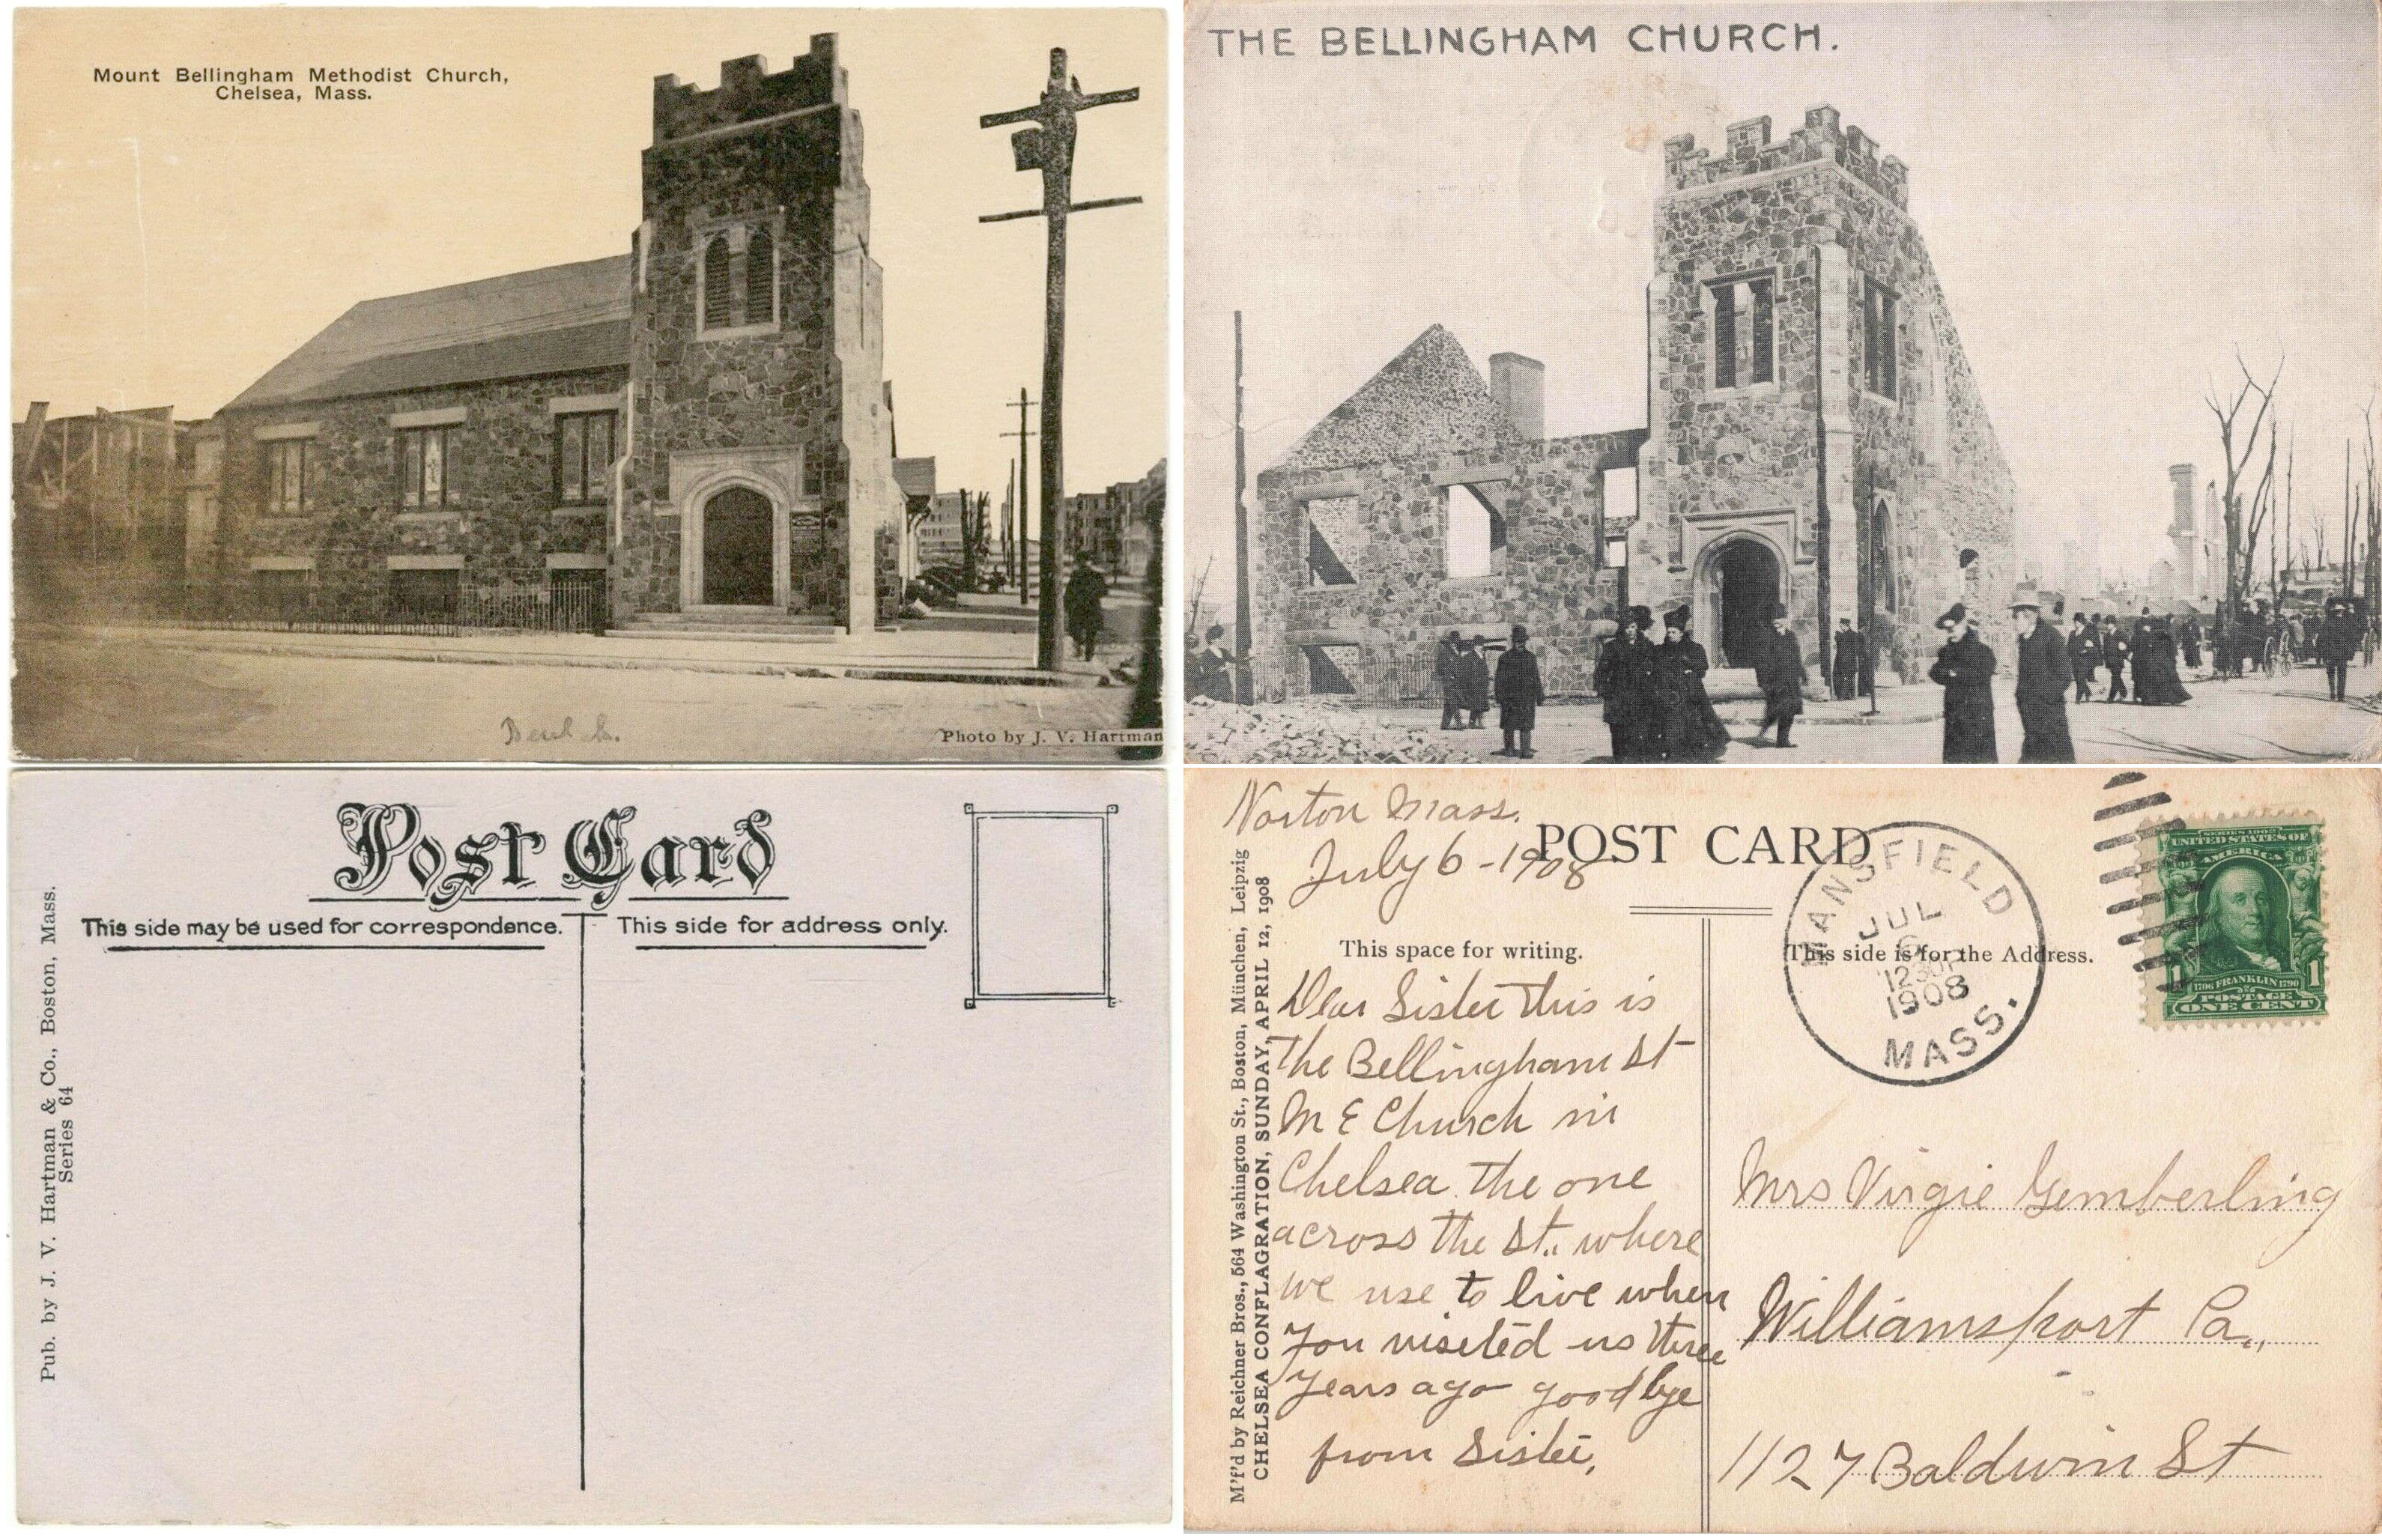 Mount Bellingham Methodist Church,
Chelsea, Mass.
Photo by J. V. Hartman
THE BELLINGHAM CHURCH.
Post Card
This side may be used for correspondence.
This side for address only.
Pub. by J. V. Hartman & Co., Boston, Mass.
Series 64
Norton Mass.
July 6 - 1908
POST CARD
This space for writing.
This side is for the Address.
M'f'd by Reichner Bros., 564 Washington St., Boston, München, Leipzig
CHELSEA CONFLAGRATION, SUNDAY, APRIL 12, 1908
Dear Sister this is
the Bellingham St
M E Church in
Chelsea the one
across the St., where
we use to live when
you viseted us three
years ago good bye
from Sister,
MANSFIELD
JUL
6
12 30 P
1908
MASS.
SERIES 1902
UNITED STATES OF
AMERICA
1 1
1706 FRANKLIN 1790
POSTAGE
ONE CENT
Mrs Virgie Gemberling
Williamsport Pa.,
1127 Baldwin St